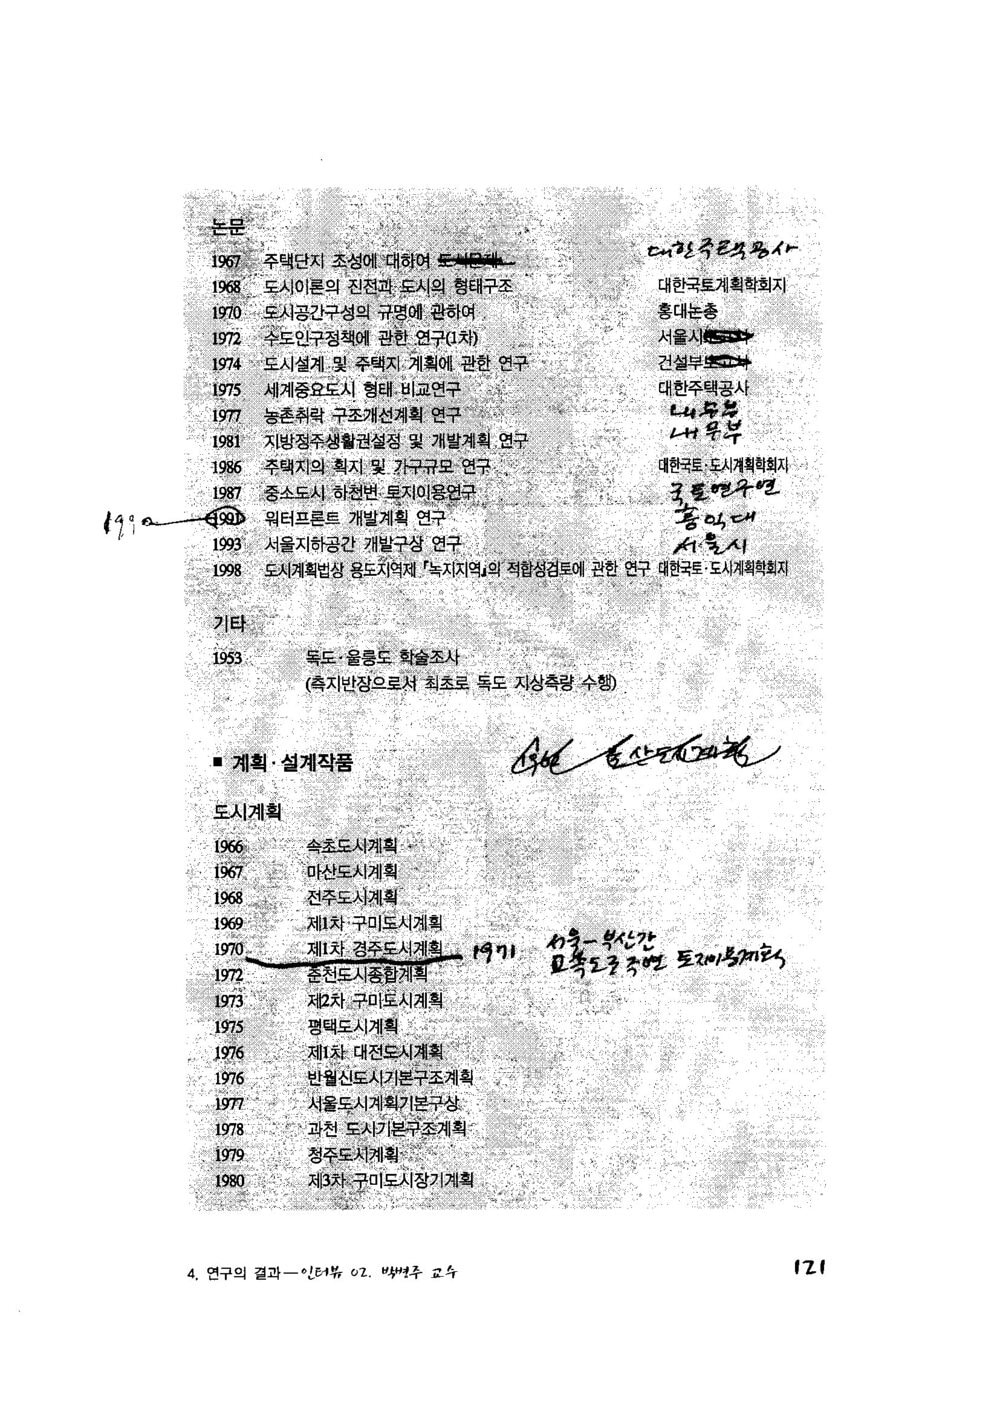 논문
1967 주택단지 조성에 대하여 대한주택공사
1968 도시이론의 진전과 도시의 형태구조 대한국토계획학회지
1970 도시공간구성의 규명에 관하여 홍대논총
1972 수도인구정책에 관한 연구(1차) 서울시
1974 도시설계 및 주택지 계획에 관한 연구 건설부
1975 세계중요도시 형태 비교연구 대한주택공사
1977 농촌취락 구조개선계획 연구 내무부
1981 지방정주생활권설정 및 개발계획 연구 내무부
1986 주택지의 획지 및 가구규모 연구 대한국토·도시계획학회지
1987 중소도시 하천변 토지이용연구 국토연구연
1990 1991 워터프론트 개발계획 연구 홍익대
1993 서울지하공간 개발구상 연구 서울시
1998 도시계획법상 용도지역제 『녹지지역』의 적합성검토에 관한 연구 대한국토·도시계획학회지
기타
1953 독도·울릉도 학술조사
(측지반장으로서 최초로 독도 지상측량 수행)
■ 계획·설계작품 울산도시계획
도시계획
1966 속초도시계획
1967 마산도시계획
1968 전주도시계획
1969 제1차 구미도시계획
1970 제1차 경주도시계획 1971 서울–부산간
고속도로 주변 토지이용계획
1972 춘천도시종합계획
1973 제2차 구미도시계획
1975 평택도시계획
1976 제1차 대전도시계획
1976 반월신도시기본구조계획
1977 서울도시계획기본구상
1978 과천 도시기본구조계획
1979 청주도시계획
1980 제3차 구미도시장기계획
4. 연구의 결과—인터뷰 02. 박병주 교수 121